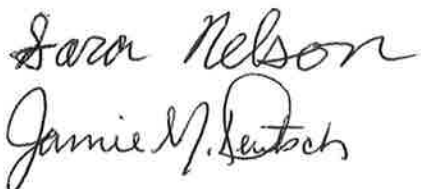 Sara Nelson
Jamie M. Deutsch